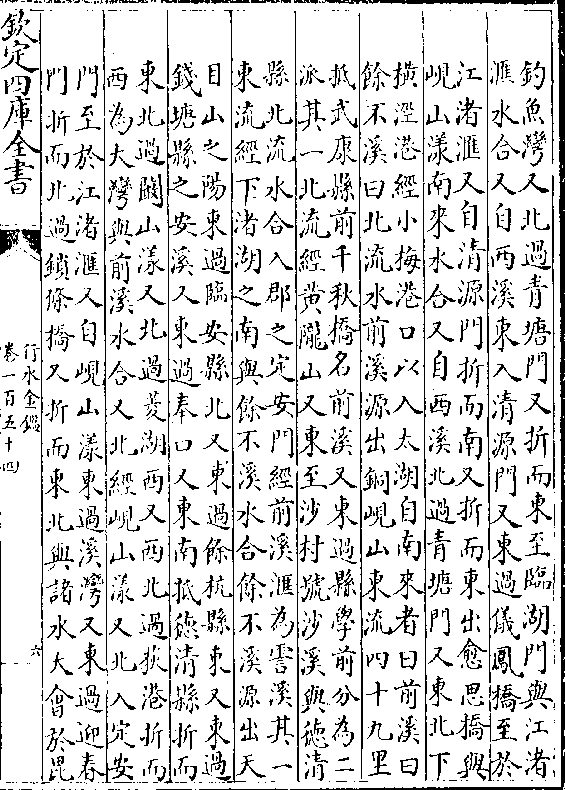 釣魚灣又北過青塘門又折而東至臨湖門與江渚
滙水合又自西溪東入清源門又東過儀鳳橋至於
江渚滙又自清源門折而南又折而東出愈思橋與
峴山漾南來水合又自西溪北過青塘門又東北下
橫涇港經小梅港口以入太湖自南來者曰前溪曰
餘不溪曰北流水前溪源出銅峴山東流四十九里
抵武康縣前千秋橋名前溪又東過縣學前分為二
派其一北流經黄隴山又東至沙村號沙溪與徳清
縣北流水合入郡之定安門經前溪滙為霅溪其一
東流經下渚湖之南與餘不溪水合餘不溪源出天
目山之陽東過臨安縣北又東過餘杭縣東又東過
錢塘縣之安溪又東過奉口又東南抵徳清縣折而
東北過闗山漾又北過菱湖西又西北過荻港折而
西為大灣與前溪水合又北經峴山漾又北入定安
門至於江渚滙又自峴山漾東過溪灣又東過迎春
門折而北過鎖條橋又折而東北與諸水大會於毘
欽定四庫全書
行水金鑑
卷一百五十四
六